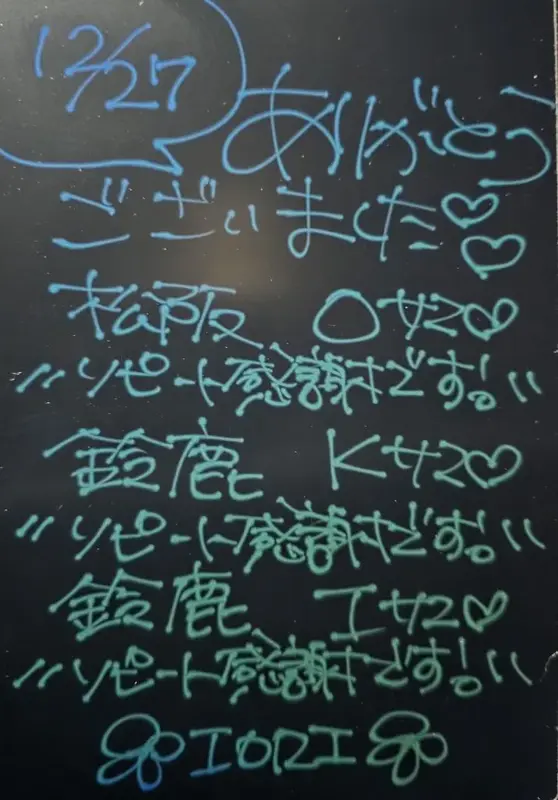 12/27
ありがとう
ございました♡♡
松阪 Oサマ♡
〃リピート感謝です!!〃
鈴鹿 Kサマ♡
〃リピート感謝です!!〃
鈴鹿 Iサマ♡
〃リピート感謝です!!〃
IORI